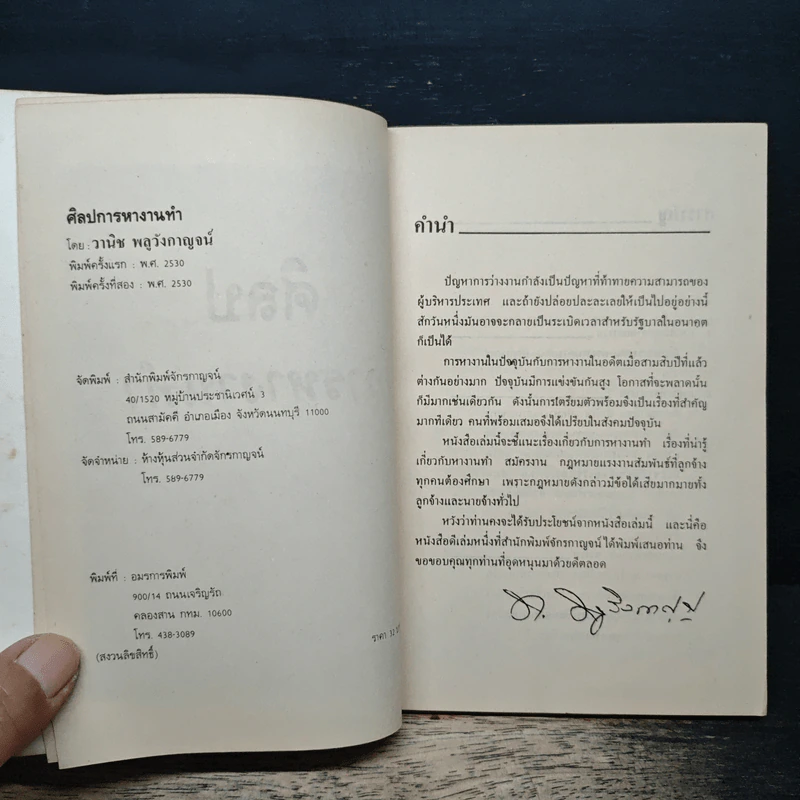 ศิลปการหางานทำ
โดย : วานิช พลูวังกาญจน์
พิมพ์ครั้งแรก : พ.ศ. 2530
พิมพ์ครั้งที่สอง : พ.ศ. 2530
จัดพิมพ์ : สำนักพิมพ์จักรกาญจน์
40/1520 หมู่บ้านประชานิเวศน์ 3
ถนนสามัคคี อำเภอเมือง จังหวัดนนทบุรี 11000
โทร. 589-6779
จัดจำหน่าย : ห้างหุ้นส่วนจำกัดจักรกาญจน์
โทร. 589-6779
พิมพ์ที่ : อมรการพิมพ์
900/14 ถนนเจริญรัถ
คลองสาน กทม. 10600
โทร. 438-3089
(สงวนลิขสิทธิ์)
ราคา 32
คำนำ
ปัญหาการว่างงานกำลังเป็นปัญหาที่ท้าทายความสามารถของ
ผู้บริหารประเทศ และถ้ายังปล่อยปละละเลยให้เป็นไปอยู่อย่างนี้
สักวันหนึ่งมันอาจจะกลายเป็นระเบิดเวลาสำหรับรัฐบาลในอนาคต
ก็เป็นได้
การหางานในปัจจุบันกับการหางานในอดีตเมื่อสามสิบปีที่แล้ว
ต่างกันอย่างมาก ปัจจุบันมีการแข่งขันกันสูง โอกาสที่จะพลาดนั้น
ก็มีมากเช่นเดียวกัน ดังนั้นการเตรียมตัวพร้อมจึงเป็นเรื่องที่สำคัญ
มากทีเดียว คนที่พร้อมเสมอจึงได้เปรียบในสังคมปัจจุบัน
หนังสือเล่มนี้จะชี้แนะเรื่องเกี่ยวกับการหางานทำ เรื่องที่น่ารู้
เกี่ยวกับหางานทำ สมัครงาน กฎหมายแรงงานสัมพันธ์ที่ลูกจ้าง
ทุกคนต้องศึกษา เพราะกฎหมายดังกล่าวมีข้อได้เสียมากมายทั้ง
ลูกจ้างและนายจ้างทั่วไป
หวังว่าท่านคงจะได้รับประโยชน์จากหนังสือเล่มนี้ และนี่คือ
หนังสือดีเล่มหนึ่งที่สำนักพิมพ์จักรกาญจน์ ได้พิมพ์เสนอท่าน จึง
ขอขอบคุณทุกท่านที่อุดหนุนมาด้วยดีตลอด